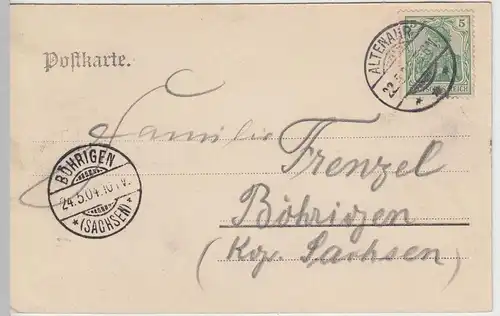 Postkarte.
ALTENAHR
22.5
5
REICH
Familie
Frenzel
BÖHRIGEN
24.5.04.10 V.
*(SACHSEN)*
Böhrigen
(Kgr. Sachsen)